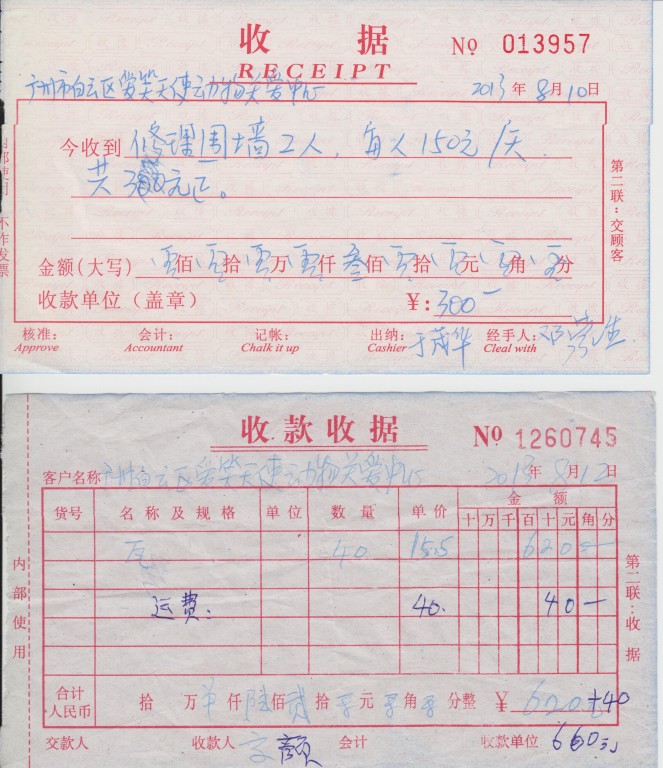 收据 № 013957
RECEIPT
广州市白云区爱笑天使动物关爱中心 2013年8月10日
今收到 修理围墙工人，每人150元/天
共300元正。
金额(大写) 零佰零拾零万零仟叁佰零拾零元零角零分
收款单位(盖章) ¥:300—
核准: 会计: 记帐: 出纳: 于茂华 经手人:
Approve Accountant Chalk it up Cashier Cleal with
第二联:交顾客
内部使用 不作发票
收款收据 № 1260745
客户名称 广州白云区爱笑天使动物关爱中心 2013年8月12日
货号 名称及规格 单位 数量 单价 金额
十万千百十元角分
瓦 40 15.5 620—
运费: 40. 40—
合计人民币 拾 万 仟 陆佰贰拾零元零角零分整 ¥ 620+40
交款人 收款人 会计 收款单位 660元
内部使用
第二联:收据